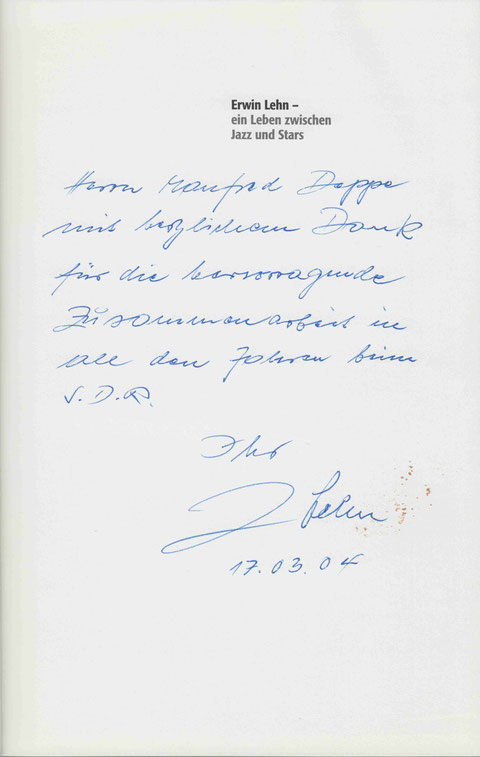 Erwin Lehn –
ein Leben zwischen
Jazz und Stars
Herrn Manfred Deppe
mit herzlichem Dank
für die hervorragende
Zusammenarbeit in
all den Jahren beim
S.D.R.
Ihr
Lehn
17.03.04